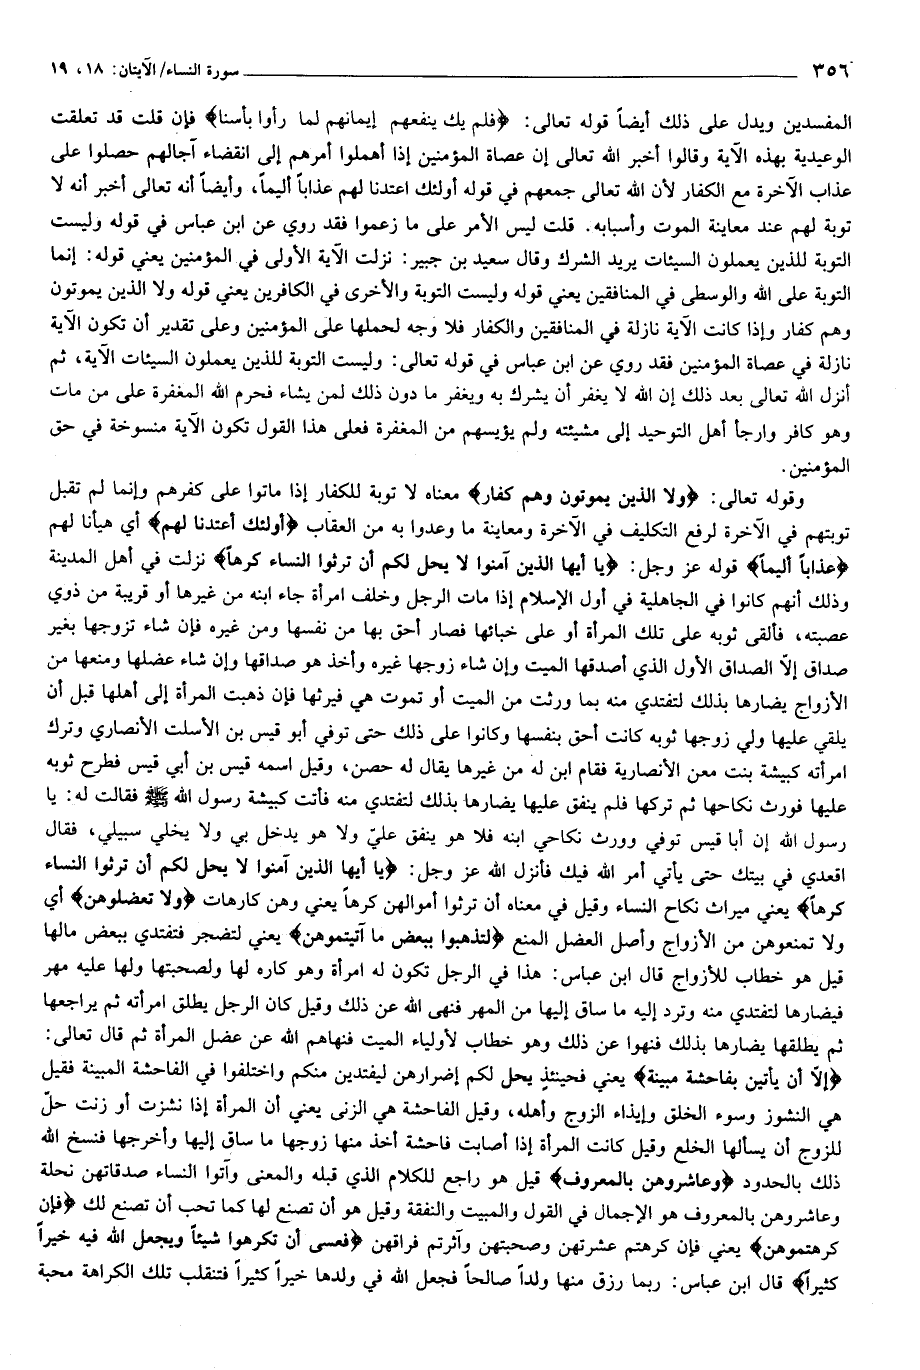 ٣٥٦ سورة النساء/ الآيتان: ١٨، ١٩
المفسدين ويدل على ذلك أيضاً قوله تعالى: ﴿فلم يك ينفعهم إيمانهم لما رأوا بأسنا﴾ فإن قلت قد تعلقت
الوعيدية بهذه الآية وقالوا أخبر الله تعالى إن عصاة المؤمنين إذا أهملوا أمرهم إلى انقضاء آجالهم حصلوا على
عذاب الآخرة مع الكفار لأن الله تعالى جمعهم في قوله أولئك اعتدنا لهم عذاباً أليماً، وأيضاً أنه تعالى أخبر أنه لا
توبة لهم عند معاينة الموت وأسبابه. قلت ليس الأمر على ما زعموا فقد روي عن ابن عباس في قوله وليست
التوبة للذين يعملون السيئات يريد الشرك وقال سعيد بن جبير: نزلت الآية الأولى في المؤمنين يعني قوله: إنما
التوبة على الله والوسطى في المنافقين يعني قوله وليست التوبة والأخرى في الكافرين يعني قوله ولا الذين يموتون
وهم كفار وإذا كانت الآية نازلة في المنافقين والكفار فلا وجه لحملها على المؤمنين وعلى تقدير أن تكون الآية
نازلة في عصاة المؤمنين فقد روي عن ابن عباس في قوله تعالى: وليست التوبة للذين يعملون السيئات الآية، ثم
أنزل الله تعالى بعد ذلك إن الله لا يغفر أن يشرك به ويغفر ما دون ذلك لمن يشاء فحرم الله المغفرة على من مات
وهو كافر وارجأ أهل التوحيد إلى مشيئته ولم يؤيسهم من المغفرة فعلى هذا القول تكون الآية منسوخة في حق
المؤمنين.
وقوله تعالى: ﴿ولا الذين يموتون وهم كفار﴾ معناه لا توبة للكفار إذا ماتوا على كفرهم وإنما لم تقبل
توبتهم في الآخرة لرفع التكليف في الآخرة ومعاينة ما وعدوا به من العقاب ﴿أولئك أعتدنا لهم﴾ أي هيأنا لهم
﴿عذاباً أليماً﴾ قوله عز وجل: ﴿يا أيها الذين آمنوا لا يحل لكم أن ترثوا النساء كرهاً﴾ نزلت في أهل المدينة
وذلك أنهم كانوا في الجاهلية في أول الإسلام إذا مات الرجل وخلف امرأة جاء ابنه من غيرها أو قريبة من ذوي
عصبته، فألقى ثوبه على تلك المرأة أو على خبائها فصار أحق بها من نفسها ومن غيره فإن شاء تزوجها بغير
صداق إلاّ الصداق الأول الذي أصدقها الميت وإن شاء زوجها غيره وأخذ هو صداقها وإن شاء عضلها ومنعها من
الأزواج يضارها بذلك لتفتدي منه بما ورثت من الميت أو تموت هي فيرثها فإن ذهبت المرأة إلى أهلها قبل أن
يلقي عليها ولي زوجها ثوبه كانت أحق بنفسها وكانوا على ذلك حتى توفي أبو قيس بن الأسلت الأنصاري وترك
امرأته كبيشة بنت معن الأنصارية فقام ابن له من غيرها يقال له حصن، وقيل اسمه قيس بن أبي قيس فطرح ثوبه
عليها فورث نكاحها ثم تركها فلم ينفق عليها يضارها بذلك لتفتدي منه فأتت كبيشة رسول الله ﷺ فقالت له: يا
رسول الله إن أبا قيس توفي وورث نكاحي ابنه فلا هو ينفق عليّ ولا هو يدخل بي ولا يخلي سبيلي، فقال
اقعدي في بيتك حتى يأتي أمر الله فيك فأنزل الله عز وجل: ﴿يا أيها الذين آمنوا لا يحل لكم أن ترثوا النساء
كرهاً﴾ يعني ميراث نكاح النساء وقيل في معناه أن ترثوا أموالهن كرهاً يعني وهن كارهات ﴿ولا تعضلوهن﴾ أي
ولا تمنعوهن من الأزواج وأصل العضل المنع ﴿لتذهبوا ببعض ما آتيتموهن﴾ يعني لتضجر فتفتدي ببعض مالها
قيل هو خطاب للأزواج قال ابن عباس: هذا في الرجل تكون له امرأة وهو كاره لها ولصحبتها ولها عليه مهر
فيضارها لتفتدي منه وترد إليه ما ساق إليها من المهر فنهى الله عن ذلك وقيل كان الرجل يطلق امرأته ثم يراجعها
ثم يطلقها يضارها بذلك فنهوا عن ذلك وهو خطاب لأولياء الميت فنهاهم الله عن عضل المرأة ثم قال تعالى:
﴿إلاّ أن يأتين بفاحشة مبينة﴾ يعني فحينئذٍ يحل لكم إضرارهن ليفتدين منكم واختلفوا في الفاحشة المبينة فقيل
هي النشوز وسوء الخلق وإيذاء الزوج وأهله، وقيل الفاحشة هي الزنى يعني أن المرأة إذا نشزت أو زنت حلّ
للزوج أن يسألها الخلع وقيل كانت المرأة إذا أصابت فاحشة أخذ منها زوجها ما ساق إليها وأخرجها فنسخ الله
ذلك بالحدود ﴿وعاشروهن بالمعروف﴾ قيل هو راجع للكلام الذي قبله والمعنى وآتوا النساء صدقاتهن نحلة
وعاشروهن بالمعروف هو الإجمال في القول والمبيت والنفقة وقيل هو أن تصنع لها كما تحب أن تصنع لك ﴿فإن
كرهتموهن﴾ يعني فإن كرهتم عشرتهن وصحبتهن وآثرتم فراقهن ﴿فعسى أن تكرهوا شيئاً ويجعل الله فيه خيراً
كثيراً﴾ قال ابن عباس: ربما رزق منها ولداً صالحاً فجعل الله في ولدها خيراً كثيراً فتنقلب تلك الكراهة محبة